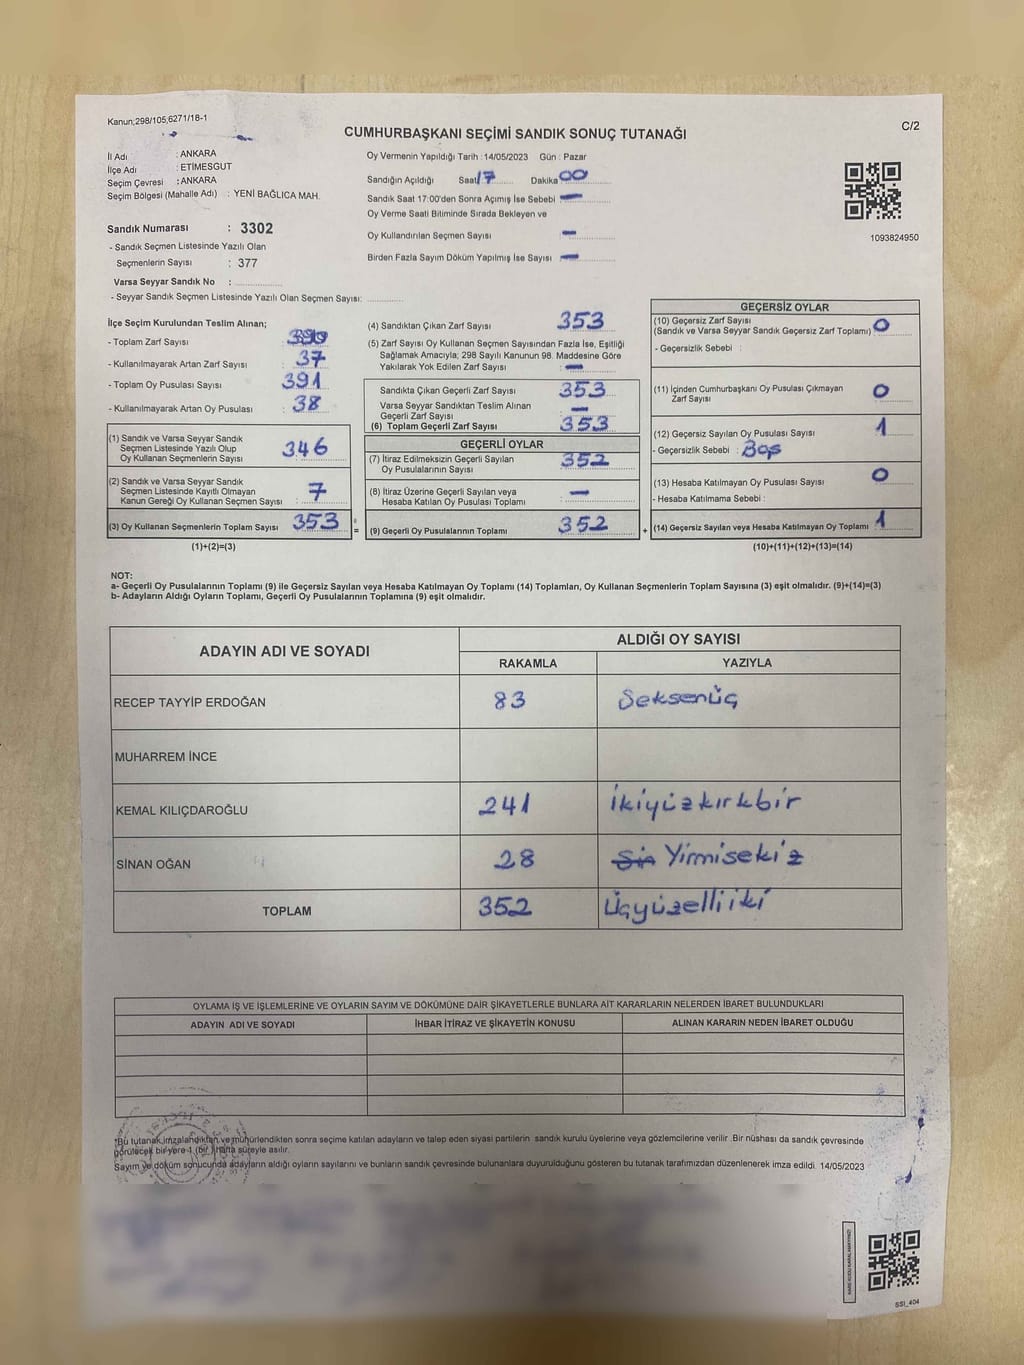 Kanun;298/105;6271/18-1
CUMHURBAŞKANI SEÇİMİ SANDIK SONUÇ TUTANAĞI
C/2
İl Adı : ANKARA
İlçe Adı : ETİMESGUT
Seçim Çevresi : ANKARA
Seçim Bölgesi (Mahalle Adı) : YENİ BAĞLICA MAH.
Sandık Numarası : 3302
- Sandık Seçmen Listesinde Yazılı Olan
Seçmenlerin Sayısı : 377
Varsa Seyyar Sandık No :
- Seyyar Sandık Seçmen Listesinde Yazılı Olan Seçmen Sayısı:
Oy Vermenin Yapıldığı Tarih : 14/05/2023 Gün : Pazar
Sandığın Açıldığı Saat 17 Dakika 00
Sandık Saat 17:00'den Sonra Açımış İse Sebebi —
Oy Verme Saati Bitiminde Sırada Bekleyen ve
Oy Kullandırılan Seçmen Sayısı —
Birden Fazla Sayım Döküm Yapılmış İse Sayısı —
1093824950
İlçe Seçim Kurulundan Teslim Alınan;
- Toplam Zarf Sayısı : 390
- Kullanılmayarak Artan Zarf Sayısı : 37
- Toplam Oy Pusulası Sayısı : 391
- Kullanılmayarak Artan Oy Pusulası : 38
(1) Sandık ve Varsa Seyyar Sandık
Seçmen Listesinde Yazılı Olup
Oy Kullanan Seçmenlerin Sayısı : 346
(2) Sandık ve Varsa Seyyar Sandık
Seçmen Listesinde Kayıtlı Olmayan
Kanun Gereği Oy Kullanan Seçmen Sayısı : 7
(3) Oy Kullanan Seçmenlerin Toplam Sayısı : 353
(1)+(2)=(3)
(4) Sandıktan Çıkan Zarf Sayısı 353
(5) Zarf Sayısı Oy Kullanan Seçmen Sayısından Fazla İse, Eşitliği
Sağlamak Amacıyla; 298 Sayılı Kanunun 98. Maddesine Göre
Yakılarak Yok Edilen Zarf Sayısı : —
Sandıkta Çıkan Geçerli Zarf Sayısı 353
Varsa Seyyar Sandıktan Teslim Alınan
Geçerli Zarf Sayısı —
(6) Toplam Geçerli Zarf Sayısı 353
GEÇERLİ OYLAR
(7) İtiraz Edilmeksizin Geçerli Sayılan
Oy Pusulalarının Sayısı 352
(8) İtiraz Üzerine Geçerli Sayılan veya
Hesaba Katılan Oy Pusulası Toplamı —
= (9) Geçerli Oy Pusulalarının Toplamı 352 +
GEÇERSİZ OYLAR
(10) Geçersiz Zarf Sayısı
(Sandık ve Varsa Seyyar Sandık Geçersiz Zarf Toplamı) 0
- Geçersizlik Sebebi :
(11) İçinden Cumhurbaşkanı Oy Pusulası Çıkmayan
Zarf Sayısı 0
(12) Geçersiz Sayılan Oy Pusulası Sayısı 1
- Geçersizlik Sebebi : Boş
(13) Hesaba Katılmayan Oy Pusulası Sayısı 0
- Hesaba Katılmama Sebebi :
(14) Geçersiz Sayılan veya Hesaba Katılmayan Oy Toplamı 1
(10)+(11)+(12)+(13)=(14)
NOT:
a- Geçerli Oy Pusulalarının Toplamı (9) ile Geçersiz Sayılan veya Hesaba Katılmayan Oy Toplamı (14) Toplamları, Oy Kullanan Seçmenlerin Toplam Sayısına (3) eşit olmalıdır. (9)+(14)=(3)
b- Adayların Aldığı Oyların Toplamı, Geçerli Oy Pusulalarının Toplamına (9) eşit olmalıdır.
ADAYIN ADI VE SOYADI ALDIĞI OY SAYISI
RAKAMLA YAZIYLA
RECEP TAYYİP ERDOĞAN 83 Seksenüç
MUHARREM İNCE
KEMAL KILIÇDAROĞLU 241 İkiyüzkırkbir
SİNAN OĞAN 28 Sin Yirmisekiz
TOPLAM 352 Üçyüzelliiki
OYLAMA İŞ VE İŞLEMLERİNE VE OYLARIN SAYIM VE DÖKÜMÜNE DAİR ŞİKAYETLERLE BUNLARA AİT KARARLARIN NELERDEN İBARET BULUNDUKLARI
ADAYIN ADI VE SOYADI İHBAR İTİRAZ VE ŞİKAYETİN KONUSU ALINAN KARARIN NEDEN İBARET OLDUĞU
*Bu tutanak,imzalandıktan ve mühürlendikten sonra seçime katılan adayların ve talep eden siyasi partilerin sandık kurulu üyelerine veya gözlemcilerine verilir .Bir nüshası da sandık çevresinde
görülecek bir yere 1 (bir ) hafta süreyle asılır.
Sayım ve döküm sonucunda adayların aldığı oyların sayılarını ve bunların sandık çevresinde bulunanlara duyurulduğunu gösteren bu tutanak tarafımızdan düzenlenerek imza edildi. 14/05/2023
SSI_404